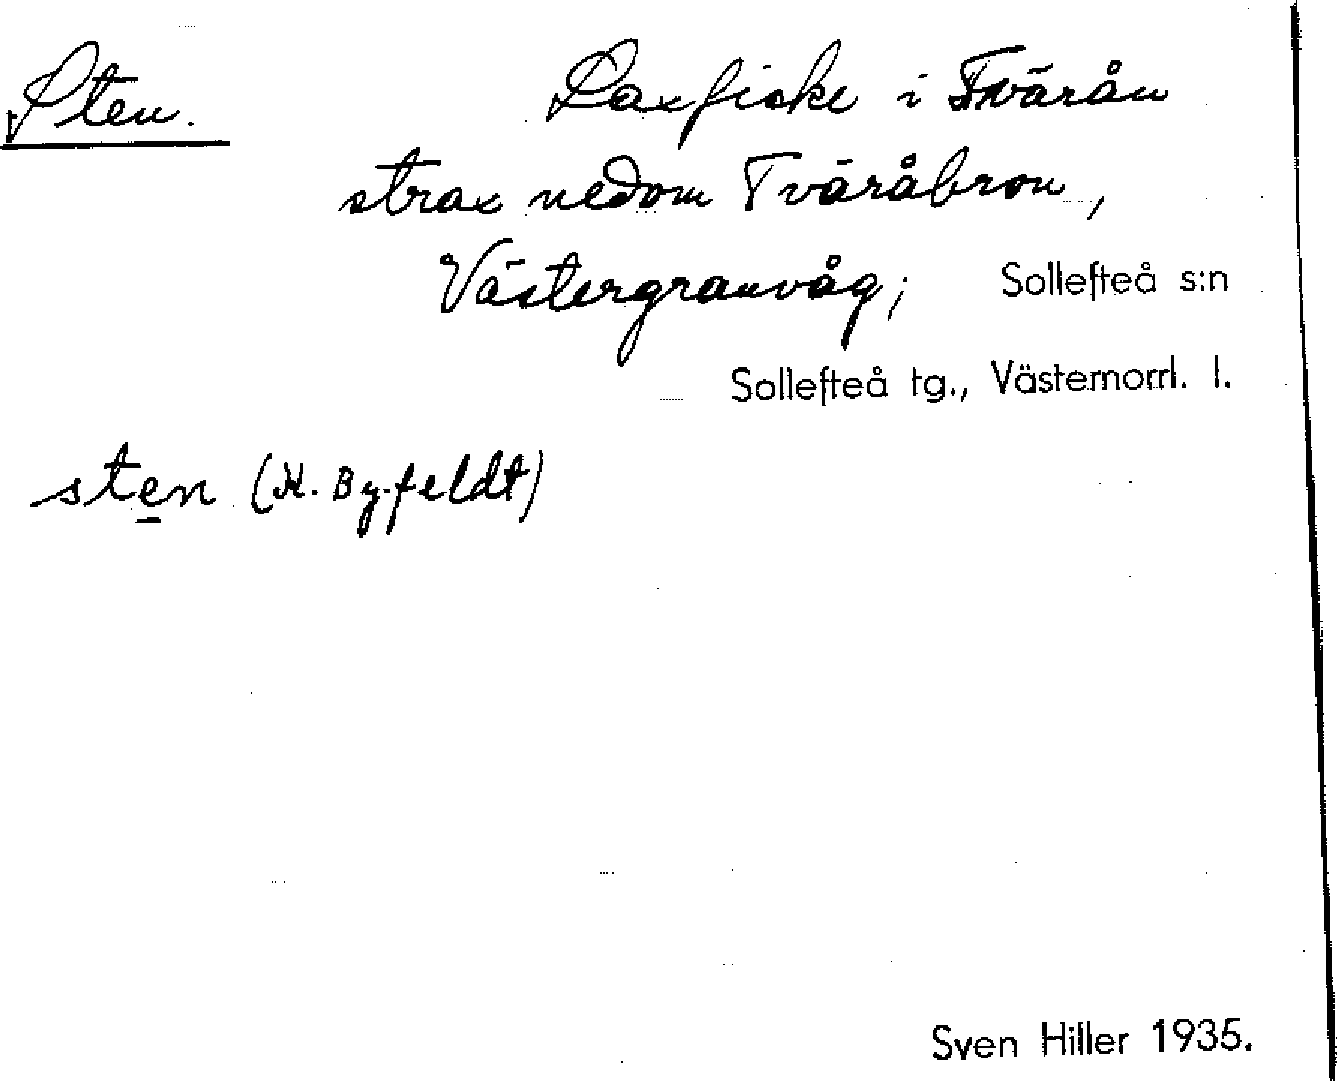 Sten. Laxfiske i Tvärån
strax nedom Tväråbron,
Västergranvåg; Sollefteå s:n
Sollefteå tg., Västernorrl. l.
sten (H. Byfeldt)
Sven Hiller 1935.